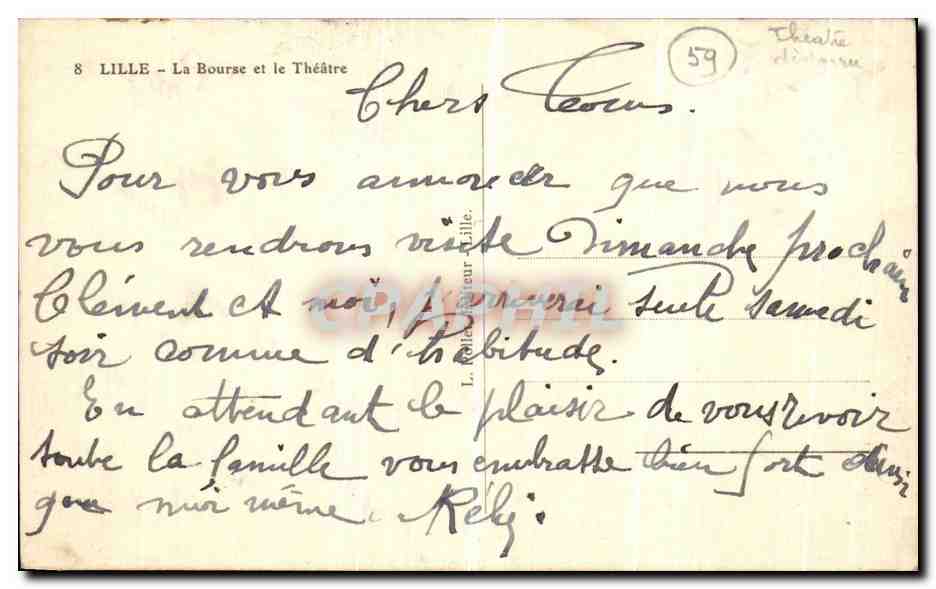 8 LILLE - La Bourse et le Théâtre
59
Théâtre
Chers Tous.
Pour vous annoncer que nous
vous rendrons visite Dimanche prochain
Clément et moi, j'arriverai seule samedi
soir comme d'habitude.
En attendant le plaisir de vous revoir
toute la famille vous embrasse bien fort ainsi
que moi même.
L. Pollet, Editeur - Lille.
CPAPHIL